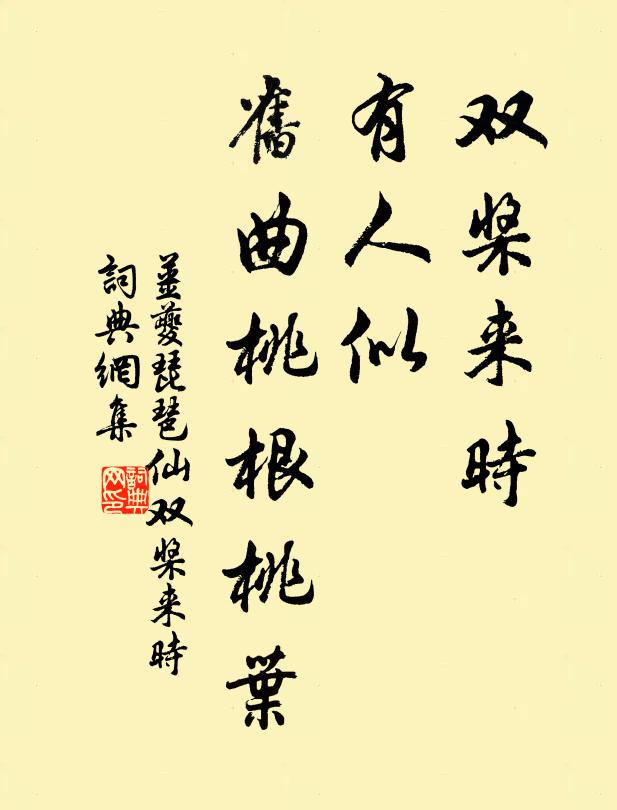 双桨来時
有人似
舊曲桃根桃葉
姜夔琵琶仙双桨来時
詞典網集
詞典網印